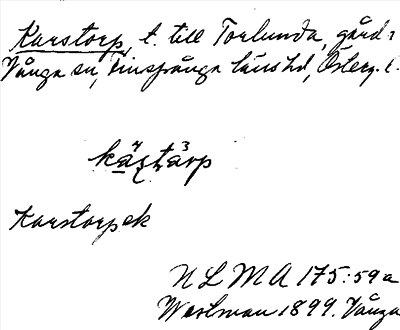 Karstorp, t. till Torlunda, gård i
Vånga sn, Finspånga läns hd, Österg. l.
ka⁴şta³rp
Karstorpek
NLMA 175:59a
Wessman 1899. Vånga